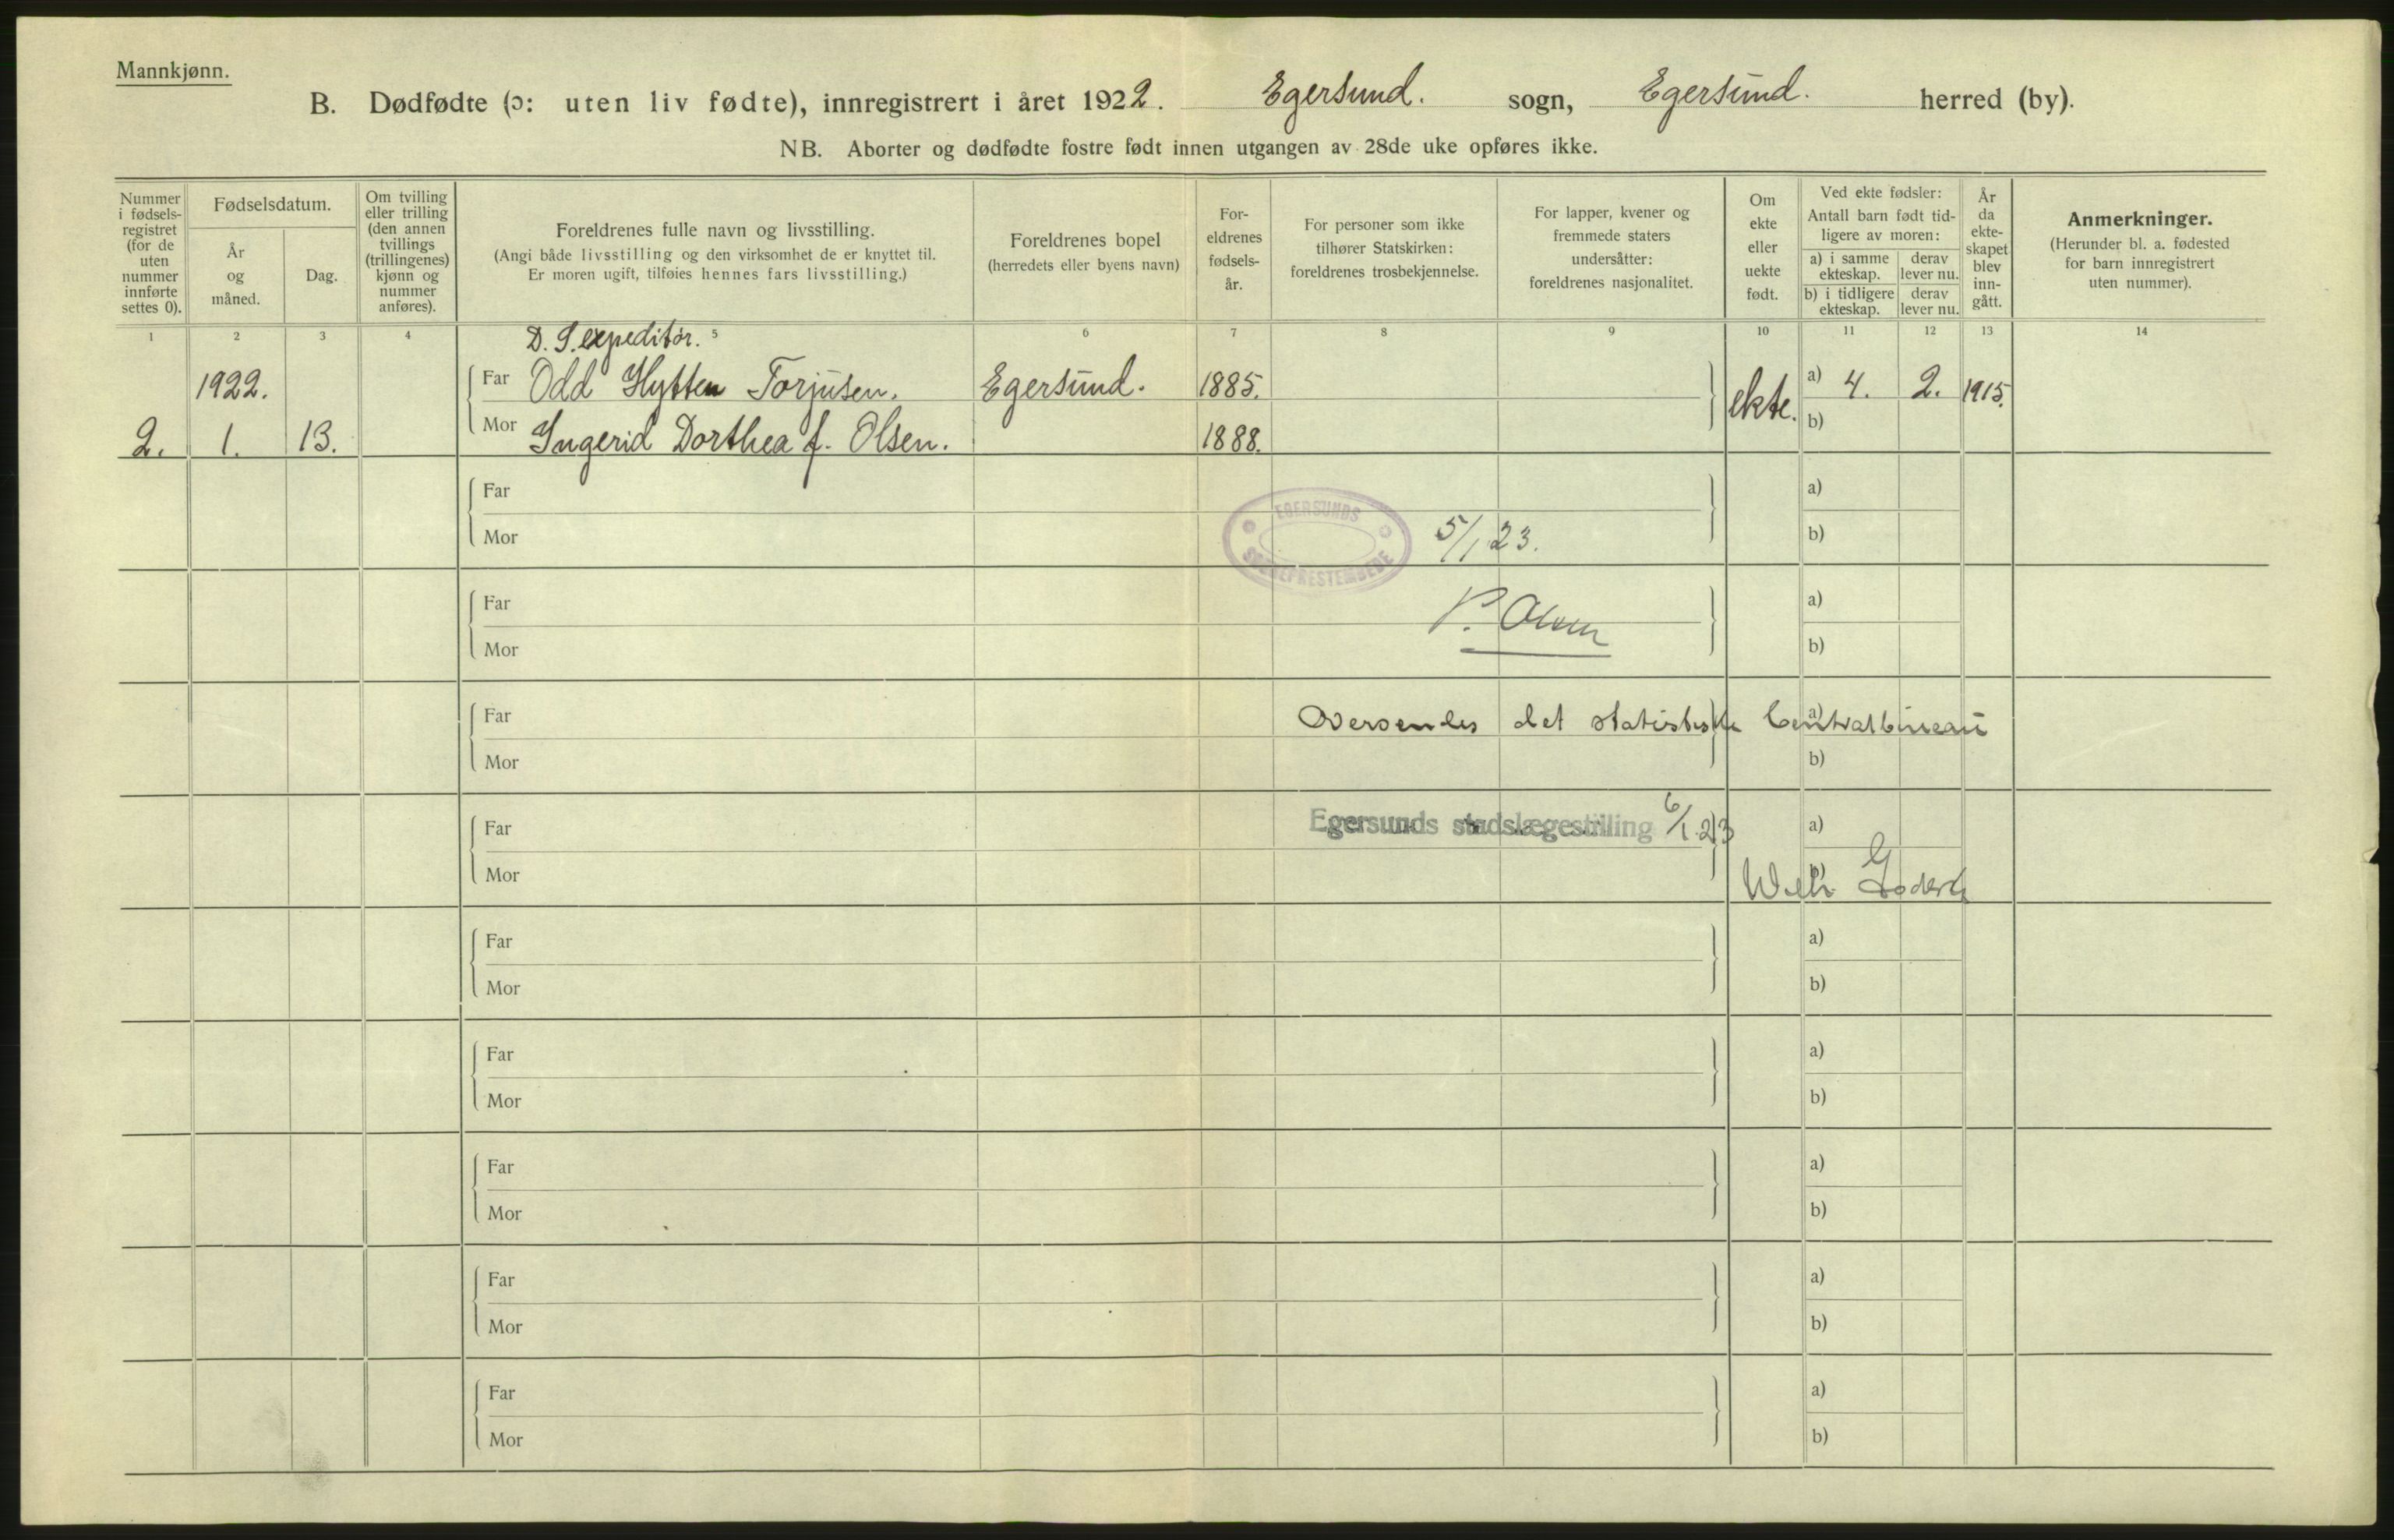 Mannkjønn.
B. Dødfødte (ɔ: uten liv fødte), innregistrert i året 1922. Egersund. sogn, Egersund. herred (by).
NB. Aborter og dødfødte fostre født innen utgangen av 28de uke opføres ikke.
Nummer
i fødsels-
registret
(for de
uten
nummer
innførte
settes 0).
Fødselsdatum.
År
og
måned.
Dag.
Om tvilling
eller trilling
(den annen
tvillings
(trillingenes)
kjønn og
nummer
anføres).
Foreldrenes fulle navn og livsstilling.
(Angi både livsstilling og den virksomhet de er knyttet til.
Er moren ugift, tilføies hennes fars livsstilling.)
Foreldrenes bopel
(herredets eller byens navn)
For-
eldrenes
fødsels-
år.
For personer som ikke
tilhører Statskirken:
foreldrenes trosbekjennelse.
For lapper, kvener og
fremmede staters
undersåtter:
foreldrenes nasjonalitet.
Om
ekte
eller
uekte
født.
Ved ekte fødsler:
Antall barn født tid-
ligere av moren:
a) i samme
ekteskap.
derav
lever nu.
b) i tidligere
ekteskap.
derav
lever nu.
År
da
ekte-
skapet
blev
inn-
gått.
Anmerkninger.
(Herunder bl. a. fødested
for barn innregistrert
uten nummer).
1 2 3 4 5 6 7 8 9 10 11 12 13 14
D. S. expeditør.
1922. Far Odd Hytten Torjusen. Egersund. 1885. ekte. a) 4. 2. 1915.
2. 1. 13. Mor Ingerid Dorthea f. Olsen. 1888. b)
Far a)
EGERSUNDS
SOGNEPRESTEMBEDE
5/1 23.
Mor b)
Far a)
P. Olsen
Mor b)
Far Oversendes det statistiske Centralbureau a)
Mor b)
Far Egersunds stadslægestilling 6/1 23 a)
Mor b)
Far a)
Mor b)
Far a)
Mor b)
Far a)
Mor b)
Far a)
Mor b)
Far a)
Mor b)